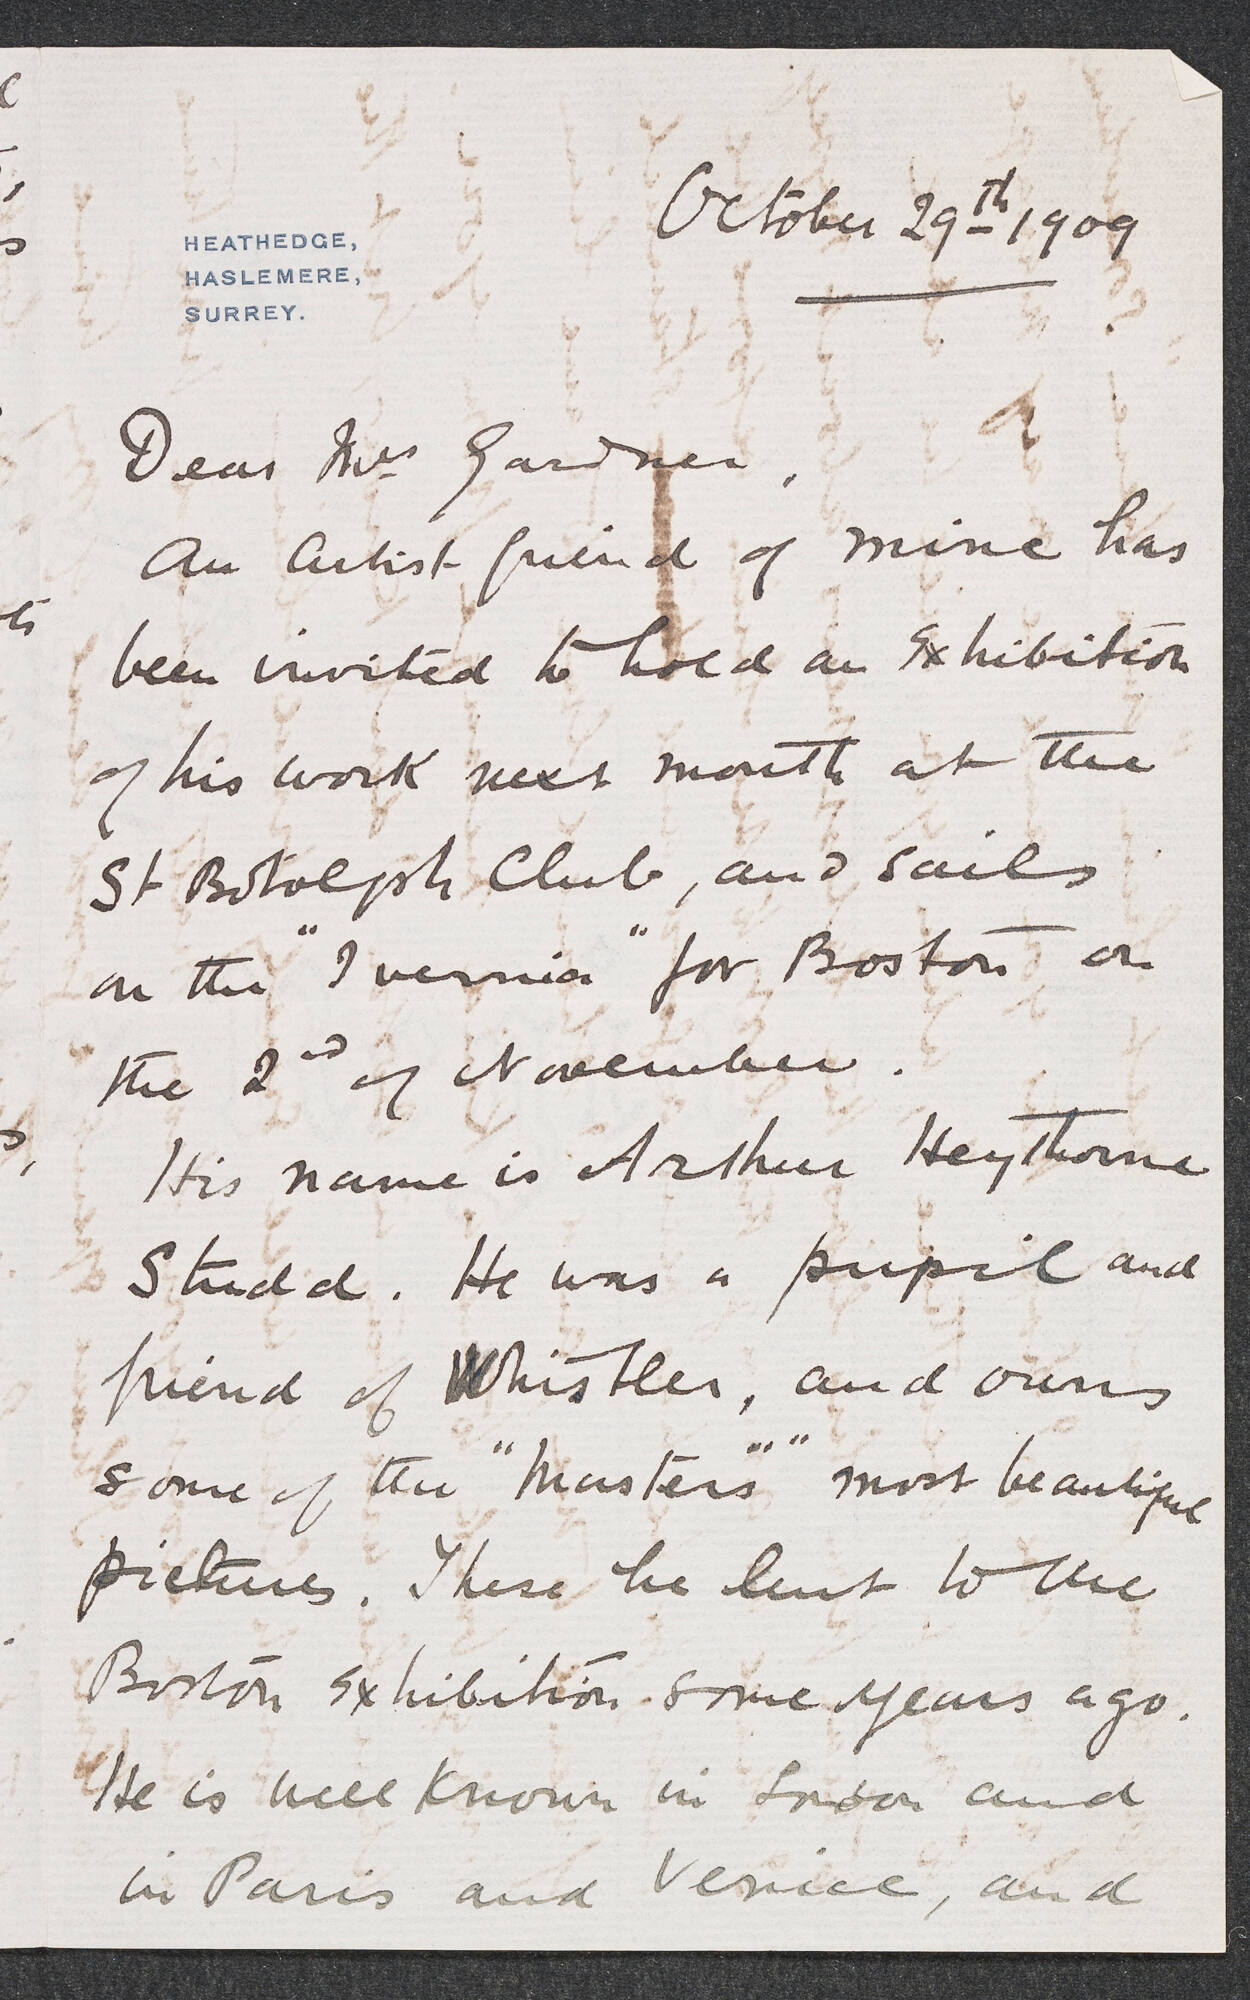 October 29th 1909
HEATHEDGE,
HASLEMERE,
SURREY.
Dear Mrs Gardner,
An Artist friend of mine has
been invited to hold an exhibition
of his work next month at the
St Botolph Club, and sails
on the "Ivernia" for Boston on
the 2nd of November.
His name is Arthur Heythorne
Studd. He was a pupil and
friend of Whistler, and owns
some of the "Master's" most beautiful
pictures. These he lent to the
Boston exhibition some years ago.
He is well known in London and
in Paris and Venice, and